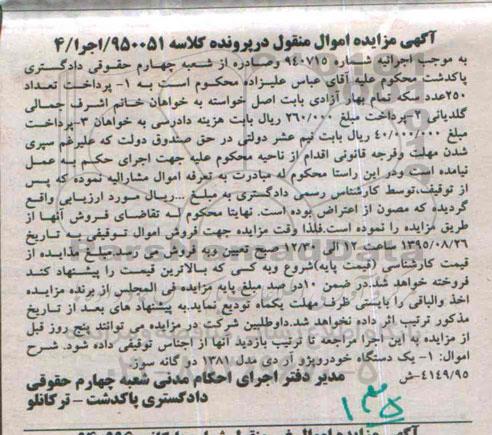 آگهی مزایده اموال منقول درپرونده کلاسه ۹۵۰۰۵۱/اجرا/۴
به موجب اجرائیه شماره ۹۴۰۷۱۵ وصادره از شعبه چهارم حقوقی دادگستری
پاکدشت محکوم علیه آقای عباس علیزاده محکوم است به ۱- پرداخت تعداد
۲۵۰عدد سکه تمام بهار آزادی بابت اصل خواسته به خواهان خانم اشرف جمالی
گلدیانی ۲-پرداخت مبلغ ۲۶۰/۰۰۰ ریال بابت هزینه دادرسی به خواهان ۳-پرداخت
مبلغ ۴۰/۰۰۰/۰۰۰ ریال بابت نیم عشر دولتی در حق صندوق دولت که علیرغم سپری
شدن مهلت وفرجه قانونی اقدام از ناحیه محکوم علیه جهت اجرای حکم به عمل
نیامده است ودر این راستا محکوم له مبادرت به تعرفه اموال مشارالیه نموده که پس
از توقیف،توسط کارشناس رسمی دادگستری به مبلغ ...ریال مورد ارزیابی واقع
گردیده که مصون از اعتراض بوده است. نهایتا محکوم له تقاضای فروش آنها از
طریق مزایده را نموده است.فلذا وقت مزایده جهت فروش اموال توقیفی به تاریخ
۱۳۹۵/۰۸/۲۶ ساعت ۱۲ الی ۱۲/۳۰ صبح تعیین وبه فروش می رسد.مبلغ مزایده از
قیمت کارشناسی (قیمت پایه)شروع وبه کسی که بالاترین قیمت را پیشنهاد کند
فروخته خواهد شد.در ضمن ۱۰در صد مبلغ پایه مزایده فی المجلس از برنده مزایده
اخذ والباقی را بایستی ظرف مهلت یکماه تودیع نماید.به پیشنهاد های بعد از تاریخ
مذکور ترتیب اثر داده نخواهد شد.داوطلبین شرکت در مزایده می توانند پنج روز قبل
از مزایده به این اجرا مراجعه تا ترتیب بازدید آنها از اجناس توقیفی داده شود. شرح
اموال: ۱- یک دستگاه خودروپژو آر دی مدل ۱۳۸۱ دوگانه سوز.
۴۱۴۹/۹۵-ش مدیر دفتر اجرای احکام مدنی شعبه چهارم حقوقی
دادگستری پاکدشت - ترکانلو
ParsNamadData